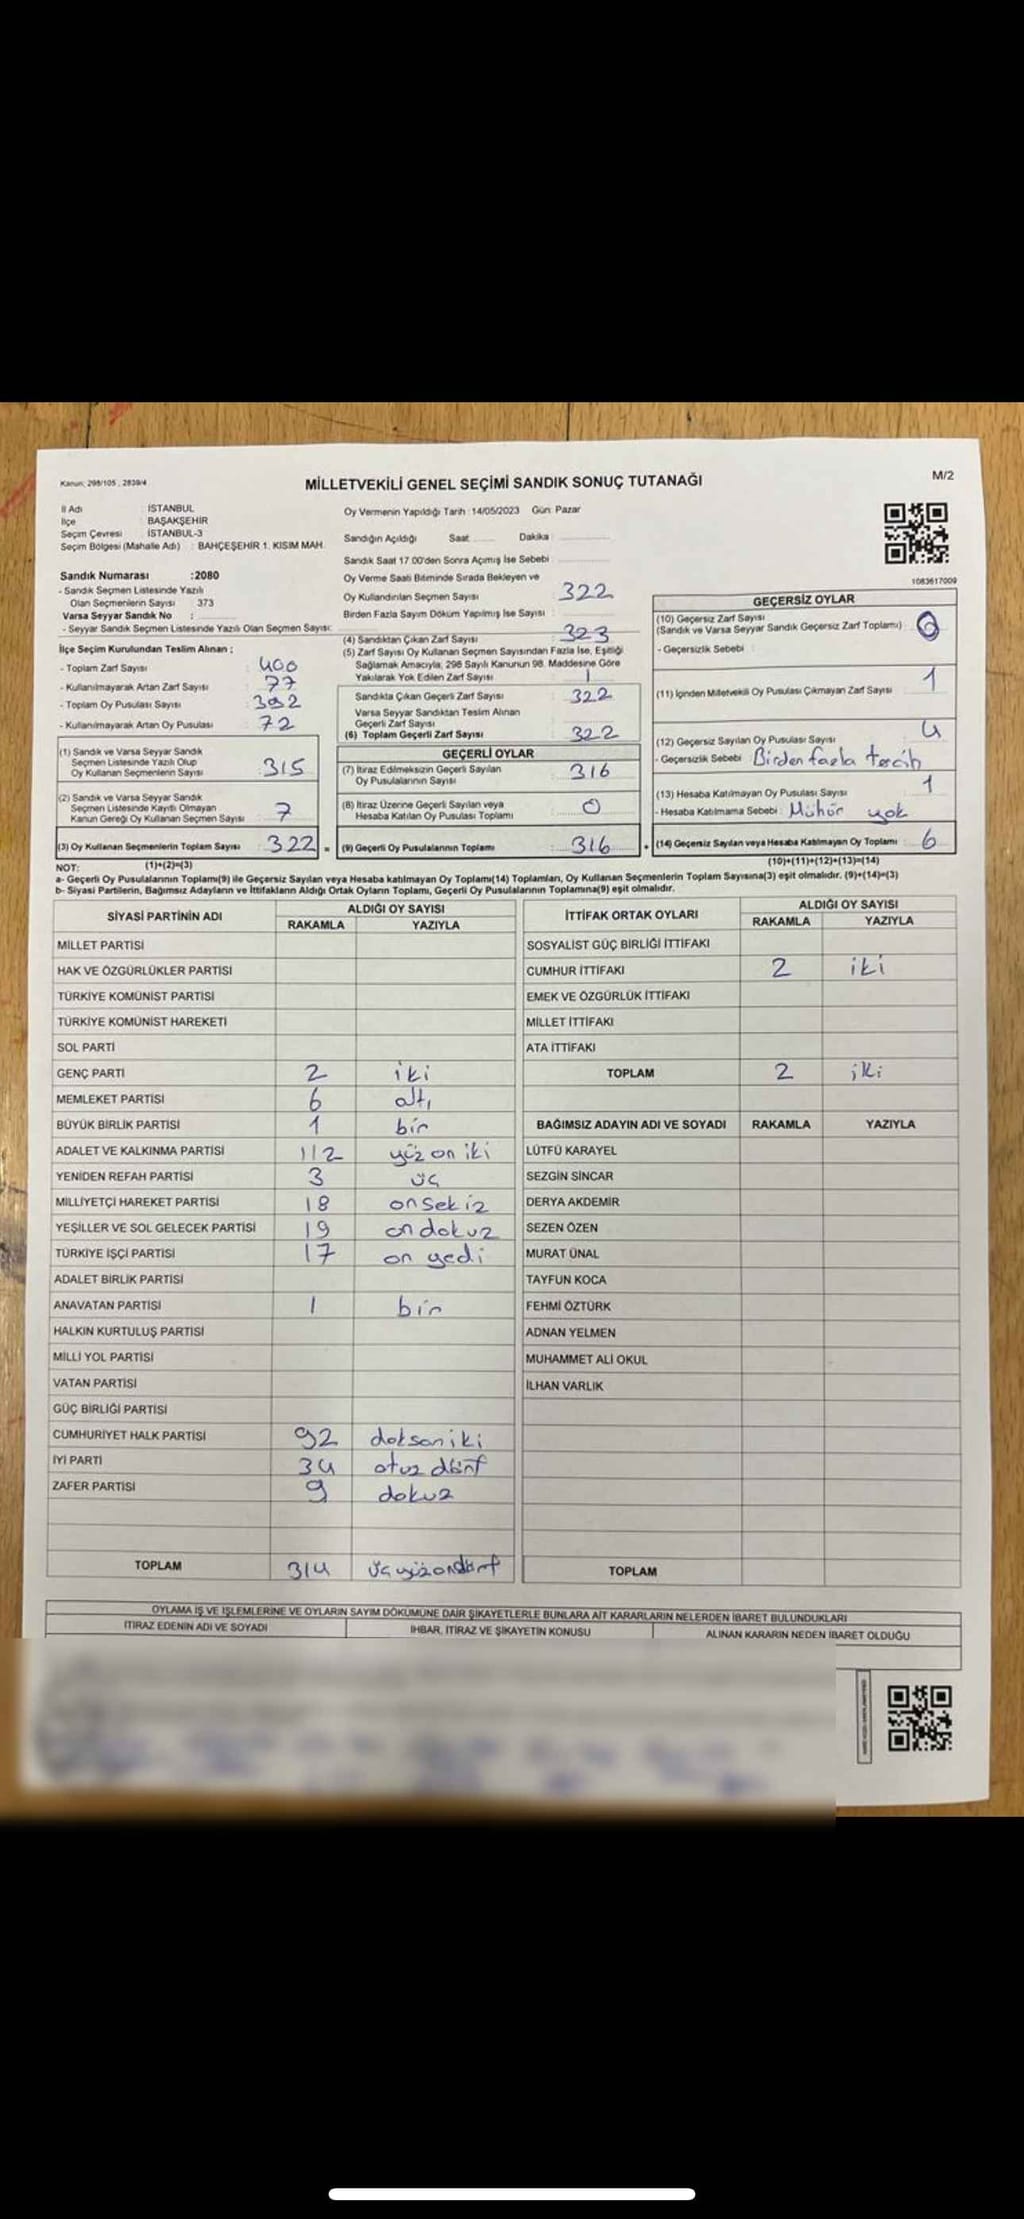 Kanun; 298/105 , 2839/4
MİLLETVEKİLİ GENEL SEÇİMİ SANDIK SONUÇ TUTANAĞI
M/2
İl Adı : İSTANBUL
İlçe : BAŞAKŞEHİR
Seçim Çevresi : İSTANBUL-3
Seçim Bölgesi (Mahalle Adı) : BAHÇEŞEHİR 1. KISIM MAH.
Sandık Numarası :2080
- Sandık Seçmen Listesinde Yazılı
Olan Seçmenlerin Sayısı : 373
Varsa Seyyar Sandık No :
- Seyyar Sandık Seçmen Listesinde Yazılı Olan Seçmen Sayısı:
İlçe Seçim Kurulundan Teslim Alınan ;
- Toplam Zarf Sayısı : 400
- Kullanılmayarak Artan Zarf Sayısı : 77
- Toplam Oy Pusulası Sayısı : 392
- Kullanılmayarak Artan Oy Pusulası : 72
(1) Sandık ve Varsa Seyyar Sandık
Seçmen Listesinde Yazılı Olup
Oy Kullanan Seçmenlerin Sayısı : 315
(2) Sandık ve Varsa Seyyar Sandık
Seçmen Listesinde Kayıtlı Olmayan
Kanun Gereği Oy Kullanan Seçmen Sayısı : 7
(3) Oy Kullanan Seçmenlerin Toplam Sayısı : 322 =
Oy Vermenin Yapıldığı Tarih :14/05/2023 Gün: Pazar
Sandığın Açıldığı Saat Dakika :
Sandık Saat 17.00'den Sonra Açımış İse Sebebi
Oy Verme Saati Bitiminde Sırada Bekleyen ve
Oy Kullandırılan Seçmen Sayısı : 322
Birden Fazla Sayım Döküm Yapılmış İse Sayısı :
(4) Sandıktan Çıkan Zarf Sayısı : 323
(5) Zarf Sayısı Oy Kullanan Seçmen Sayısından Fazla İse, Eşitliği
Sağlamak Amacıyla, 298 Sayılı Kanunun 98. Maddesine Göre
Yakılarak Yok Edilen Zarf Sayısı : 1
Sandıkta Çıkan Geçerli Zarf Sayısı : 322
Varsa Seyyar Sandıktan Teslim Alınan
Geçerli Zarf Sayısı
(6) Toplam Geçerli Zarf Sayısı : 322
GEÇERLİ OYLAR
(7) İtiraz Edilmeksizin Geçerli Sayılan
Oy Pusulalarının Sayısı : 316
(8) İtiraz Üzerine Geçerli Sayılan veya
Hesaba Katılan Oy Pusulası Toplamı : 0
(9) Geçerli Oy Pusulalarının Toplamı : 316 +
1083617009
GEÇERSİZ OYLAR
(10) Geçersiz Zarf Sayısı
(Sandık ve Varsa Seyyar Sandık Geçersiz Zarf Toplamı) : 0
- Geçersizlik Sebebi :
(11) İçinden Milletvekili Oy Pusulası Çıkmayan Zarf Sayısı : 1
(12) Geçersiz Sayılan Oy Pusulası Sayısı : 4
- Geçersizlik Sebebi : Birden fazla tercih
(13) Hesaba Katılmayan Oy Pusulası Sayısı : 1
- Hesaba Katılmama Sebebi : Mühür yok
(14) Geçersiz Sayılan veya Hesaba Katılmayan Oy Toplamı : 6
NOT: (1)+(2)=(3)
(10)+(11)+(12)+(13)=(14)
a- Geçerli Oy Pusulalarının Toplamı(9) ile Geçersiz Sayılan veya Hesaba katılmayan Oy Toplamı(14) Toplamları, Oy Kullanan Seçmenlerin Toplam Sayısına(3) eşit olmalıdır. (9)+(14)=(3)
b- Siyasi Partilerin, Bağımsız Adayların ve İttifakların Aldığı Ortak Oyların Toplamı, Geçerli Oy Pusulalarının Toplamına(9) eşit olmalıdır.
SİYASİ PARTİNİN ADI ALDIĞI OY SAYISI
RAKAMLA YAZIYLA
MİLLET PARTİSİ
HAK VE ÖZGÜRLÜKLER PARTİSİ
TÜRKİYE KOMÜNİST PARTİSİ
TÜRKİYE KOMÜNİST HAREKETİ
SOL PARTİ
GENÇ PARTİ 2 iki
MEMLEKET PARTİSİ 6 altı
BÜYÜK BİRLİK PARTİSİ 1 bir
ADALET VE KALKINMA PARTİSİ 112 yüz on iki
YENİDEN REFAH PARTİSİ 3 üç
MİLLİYETÇİ HAREKET PARTİSİ 18 onsekiz
YEŞİLLER VE SOL GELECEK PARTİSİ 19 on dokuz
TÜRKİYE İŞÇİ PARTİSİ 17 on yedi
ADALET BİRLİK PARTİSİ
ANAVATAN PARTİSİ 1 bir
HALKIN KURTULUŞ PARTİSİ
MİLLİ YOL PARTİSİ
VATAN PARTİSİ
GÜÇ BİRLİĞİ PARTİSİ
CUMHURİYET HALK PARTİSİ 92 doksan iki
İYİ PARTİ 34 otuz dört
ZAFER PARTİSİ 9 dokuz
TOPLAM 314 üçyüzondört
İTTİFAK ORTAK OYLARI ALDIĞI OY SAYISI
RAKAMLA YAZIYLA
SOSYALİST GÜÇ BİRLİĞİ İTTİFAKI
CUMHUR İTTİFAKI 2 iki
EMEK VE ÖZGÜRLÜK İTTİFAKI
MİLLET İTTİFAKI
ATA İTTİFAKI
TOPLAM 2 iki
BAĞIMSIZ ADAYIN ADI VE SOYADI RAKAMLA YAZIYLA
LÜTFÜ KARAYEL
SEZGİN SİNCAR
DERYA AKDEMİR
SEZEN ÖZEN
MURAT ÜNAL
TAYFUN KOCA
FEHMİ ÖZTÜRK
ADNAN YELMEN
MUHAMMET ALİ OKUL
İLHAN VARLIK
TOPLAM
OYLAMA İŞ VE İŞLEMLERİNE VE OYLARIN SAYIM DÖKÜMÜNE DAİR ŞİKAYETLERLE BUNLARA AİT KARARLARIN NELERDEN İBARET BULUNDUKLARI
İTİRAZ EDENİN ADI VE SOYADI İHBAR, İTİRAZ VE ŞİKAYETİN KONUSU ALINAN KARARIN NEDEN İBARET OLDUĞU